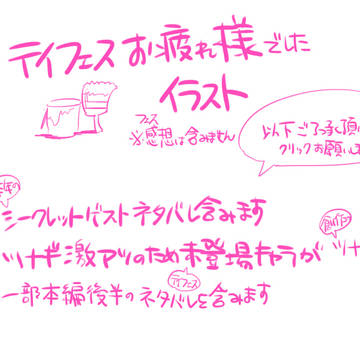 テイフェスお疲れ様でした
イラスト
フェス
※感想は含みません
以下ご了承頂
クリックお願いしま
シークレットゲストネタバレ含みます
ツナギ激アツのため未登場キャラが
ツナ
テイフェス
一部本編後半のネタバレを含みます